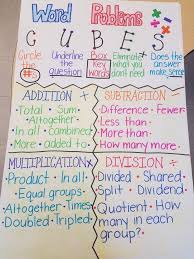 Word Problems
C U B E S
Circle the #s
Underline the question
Box key words
Eliminate what you don't need
Does the answer make sense
ADDITION +
Total • Sum •
Altogether •
In all • Combined
More • added to
SUBTRACTION
Difference • Fewer •
Less than •
More than •
How many more
MULTIPLICATION X
Product • In all •
Equal groups •
Altogether • Times
Doubled • Tripled
DIVISION ÷
Divided • Shared •
Split • Dividend
Quotient • How
many in each
group?